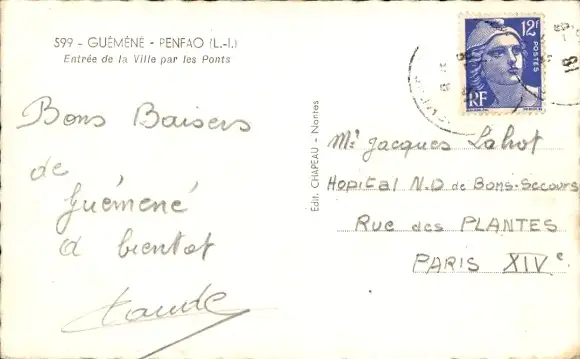 599 - GUÉMÉNÉ - PENFAO (L.-I.)
Entrée de la Ville par les Ponts
Bons Baisers
de
Guémené
a bientot
Edit. CHAPEAU - Nantes
12F
POSTES
RF
18
Mr Jacques Lahot
Hopital N.D de Bons-Secours
Rue des PLANTES
PARIS XIVe